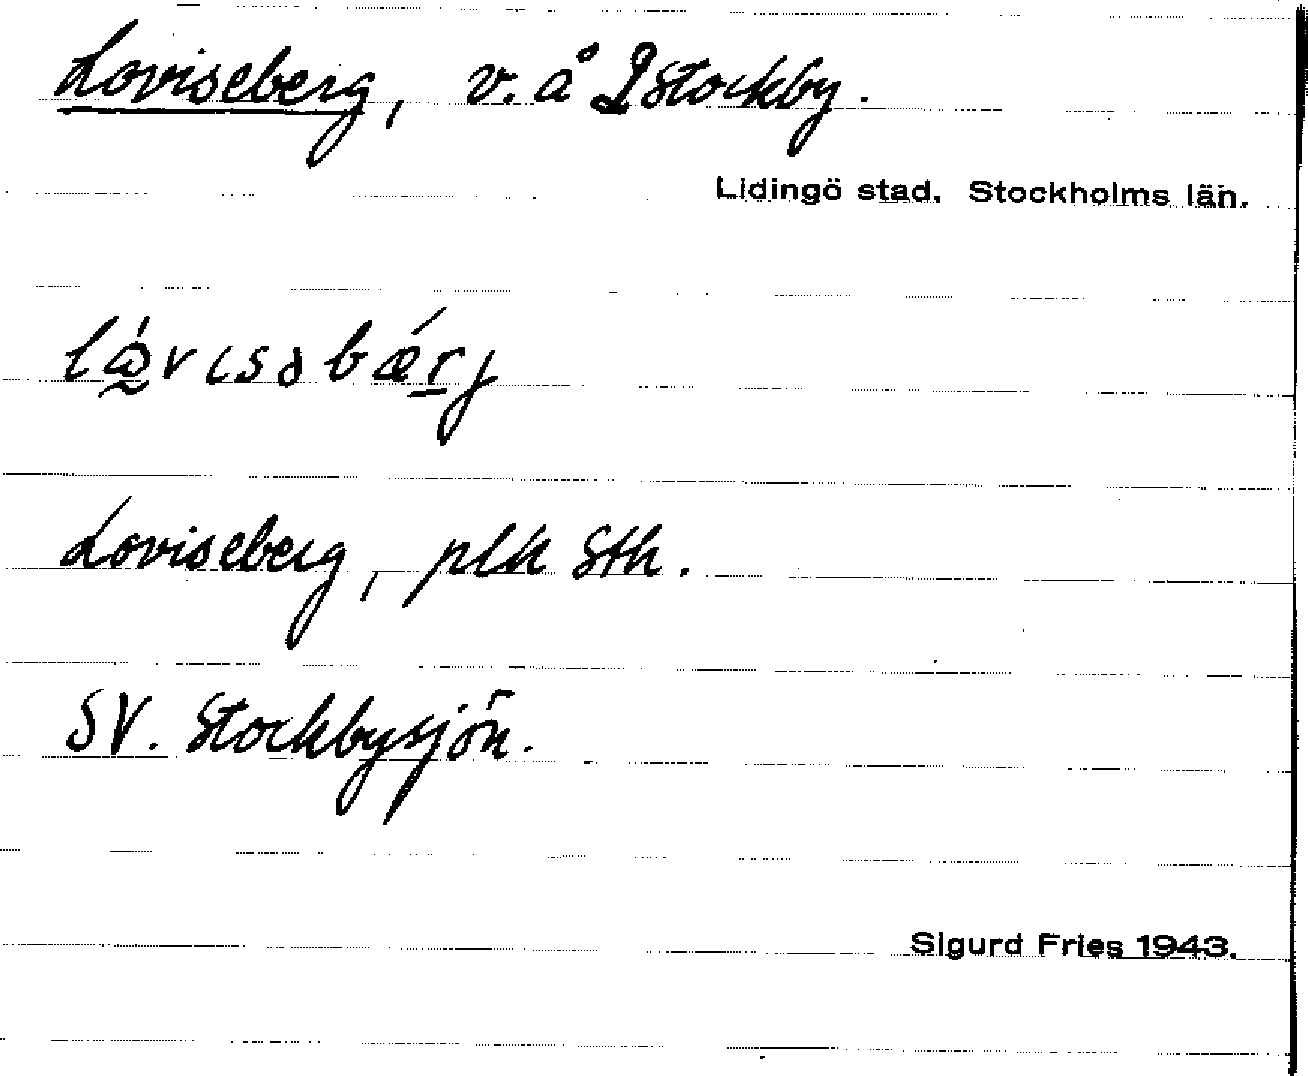 Loviseberg, v. å 2 Stockby.
Lidingö stad. Stockholms län.
Loviseberg, plk Sth.
SV. Stockbysjön.
Sigurd Fries 1943.